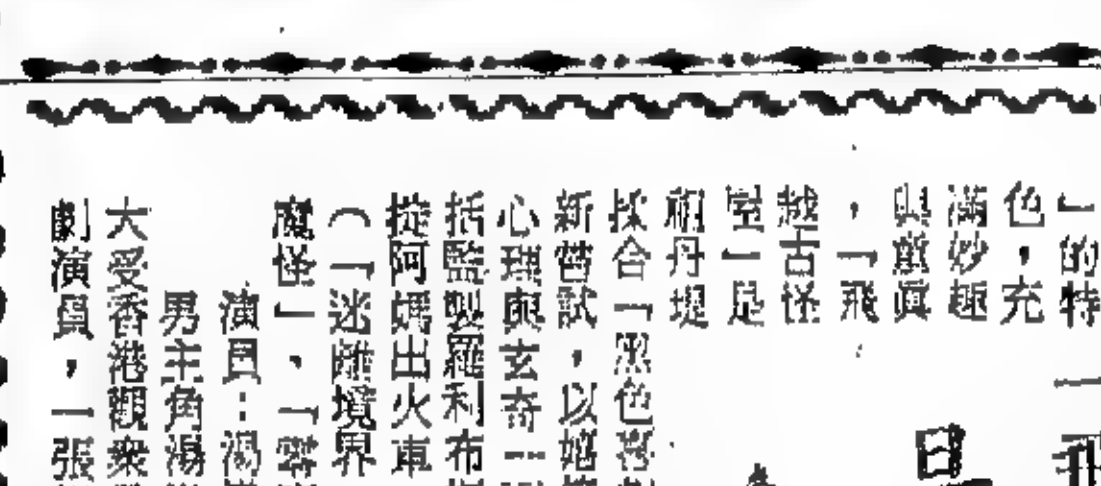 」的特
色，充
滿妙趣
與煎真
，「飛
越古怪
屋」是
祖丹堤
揉合「黑色喜
新嘗試，以嬉
心理與玄奇
括監製羅利布
掟阿媽出火車
（「迷離境界
魔怪」、「
演員：湯
男主角湯
大受香港觀衆
劇演員，一張